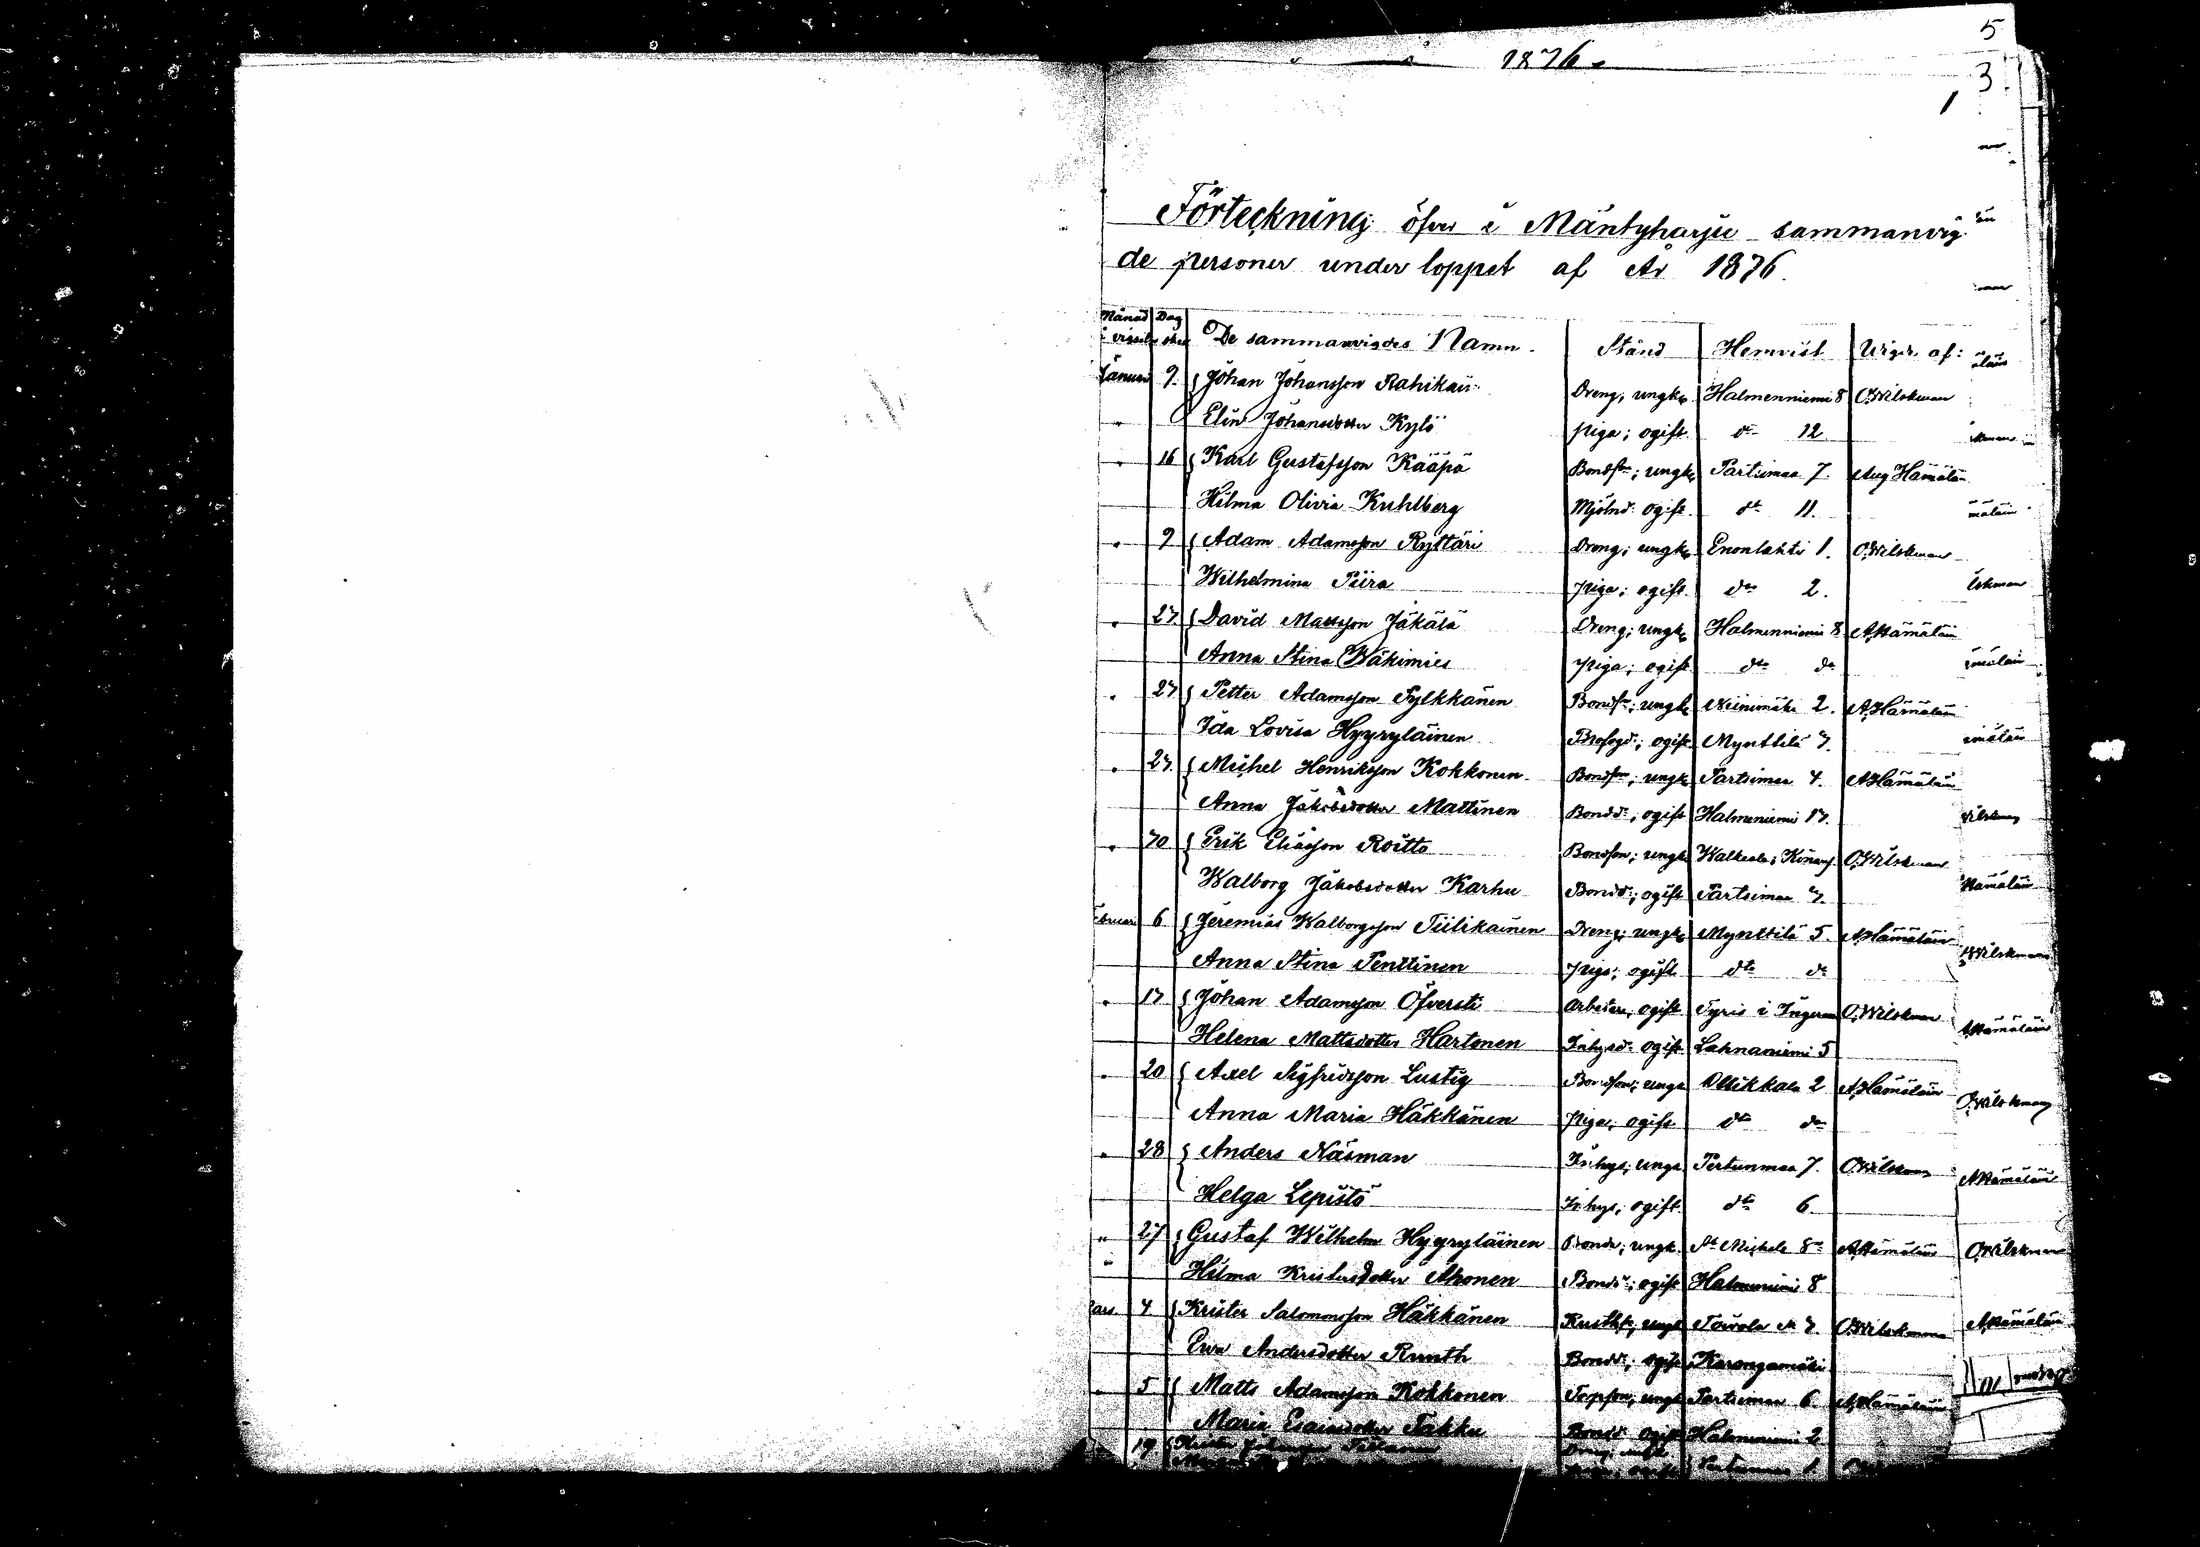 5
1876
3
1
Förteckning öfver i Mäntyharju sammanvig
de personer under loppet af År 1876.
Månad Dag De sammanvigdes Namn. Stånd Hemvist Vigde af:
Januari 9. Johan Johansson Rahikain Dreng; ungk. Halmenniemi 8 O. Wilskman
" Elin Johansdotter Kylö piga; ogift dto 12
" 16 Karl Gustafsson Kääpä Bondson; ungk. Partsimaa 7. Aug Hämäläin
Hilma Olivia Kuhlberg Mjölnd. ogift dto 11.
" 9 Adam Adamsson Ryttäri Dreng; ungk. Enonlahti 1. O. Wilskman
Wilhelmina Piira piga; ogift dto 2.
" 27. David Mattsson Jäkälä Dreng; ungk. Halmenniemi 8 A. Hämäläin
Anna Stina Wäkimies piga; ogift dto do
" 27 Petter Adamsson Pylkkänen Bonds; ungk. Niinimäki 2. A. Hämäläin
Ida Lovisa Hyyryläinen ogift Mynttilä 7.
" 27. Michel Henriksson Kokkonen Bondson; ungk. Partsimaa 4. A Hämäläin
Anna Jakobsdotter Mattinen Bondd; ogift Halmeniemi 17.
" 30 Erik Eliasson Roitto Bondson; ungk. Walkeala; O. Wilskman
Walborg Jakobsdotter Karhu Bondd; ogift Partsimaa 7.
Februari 6 Jeremias Walborgsson Tiilikainen Dreng; ungk. Mynttilä 5. A Hämäläin
Anna Stina Penttinen piga; ogift dto do
" 17 Johan Adamsson Öfversti Arbetare, ogift Tyris i Ingerm O. Wilskman
Helena Mattsdotter Hartonen Inhysd. ogift Lahnaniemi 5
" 20 Axel Sigfridsson Lustig Bondson; ungk Ollikkala 2 A. Hämäläin
Anna Maria Häkkänen Piga; ogift dto do
" 28 Anders Näsman Inhys; ungk Pertunmaa 7. O. Wilskman
Helga Lepistö Inhys; ogift. dto 6.
" 27 Gustaf Wilhelm Hyyryläinen Bonde; ungk. St Michels A. Hämäläin
" Hilma Kristersdotter Ahonen Bondd; ogift Halmeniemi 8
Mars 4 Krister Salomonsson Häkkänen ungk Toivola N 7. O. Wilskman
Eva Andersdotter Ruuth Bondd; ogift Karangamäki
" 5 Matts Adamsson Kokkonen ungk Partsimaa 6. A. Hämäläin
Maria Esaiasdotter Takku Bondd ogift Halmeniemi 2
19